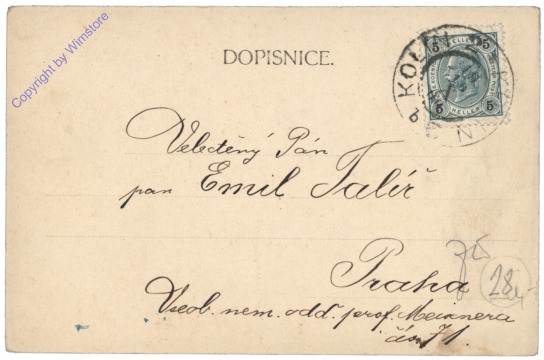 Copyright by Wimstore
DOPISNICE.
KOLÍN
5 HELLER 5
5 HELLER 5
Velectěný Pán
pan Emil Talíř
Praha
Všeob. nem. odd. prof. Meixnera
čís. 71.
28